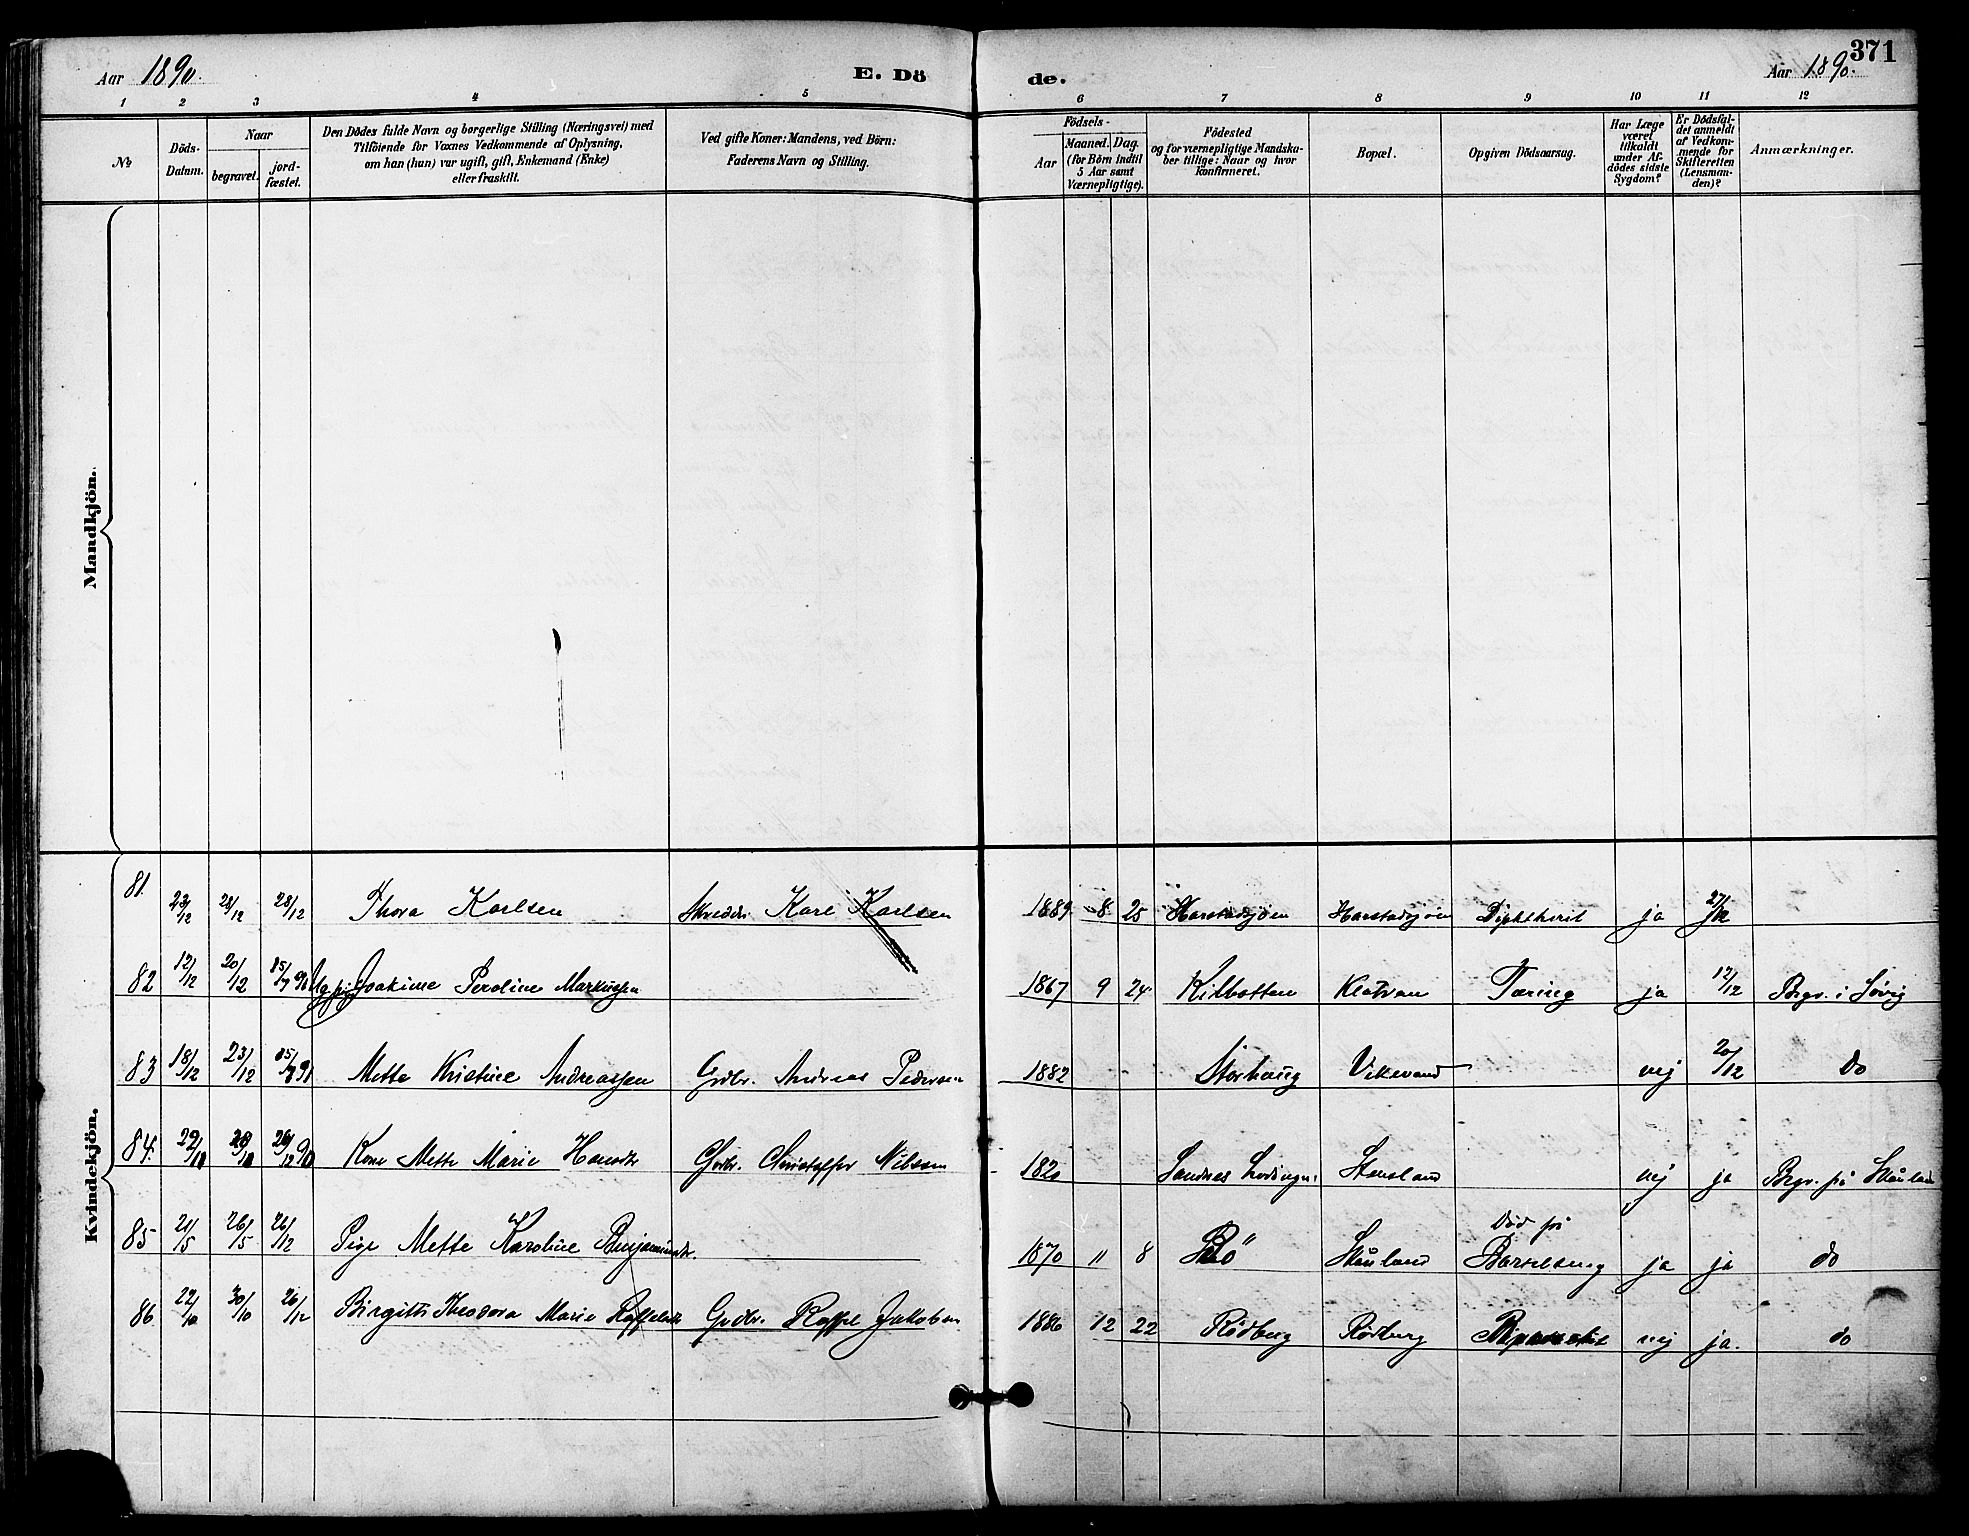 371
Aar 1890. E. Dö de. Aar 1890.
1 2 3 4 5 6 7 8 9 10 11 12
No.
Döds-Datum.
Naar
begravet.
jord-fæstet.
Den Dödes fulde Navn og borgerlige Stilling (Næringsvei) med
Tilföiende for Voxnes Vedkommende af Oplysning,
om han (hun) var ugift, gift, Enkemand (Enke)
eller fraskilt.
Ved gifte Koner: Mandens, ved Börn:
Faderens Navn og Stilling.
Födsels-
Aar
Maaned. Dag.
(for Börn indtil
5 Aar samt
Værnepligtige).
Födested
og for værnepligtige Mandska-
ber tillige: Naar og hvor
konfirmeret.
Bopæl.
Opgiven Dödsaarsag.
Har Læge
været
tilkaldt
under Af-
dödes sidste
Sygdom?
Er Dödsfal-
det anmeldt
af Vedkom-
mende for
Skifteretten
(Lensman-
den)?
Anmærkninger.
Mandkjön.
Kvindekjön.
81. 23/12 28/12 28/12 Thora Karlsen Karl Karlsen 1889 8 25 Harstadsjøen Harstadsjøen Diphtherit ja 27/12
82 12/12 20/12 Joakime Perdine Markussen 1867 9 24 Kilbotten Tæring ja 17/12 Begr. i Sövig
83 18/12 23/12 Mette Kristine Andreassen Grdbr. Andreas Pedersen 1882 Storhaug Vikevand nej 20/12 do
84. Kone Mette Marie Hansdtr Grdbr. Christoffer Nilssen 1820 Sandnes Stensland nej ja Begr. på
85 21/5 26/5 26/12 Pige Mette Karoline Benjaminsdtr. 1870 11 8 ja ja do
86 22/10 30/10 26/12 Birgitte Theodora Marie Grdbr. Jakobsen 1886 12 22 Rödberg Rödberg nej ja. do